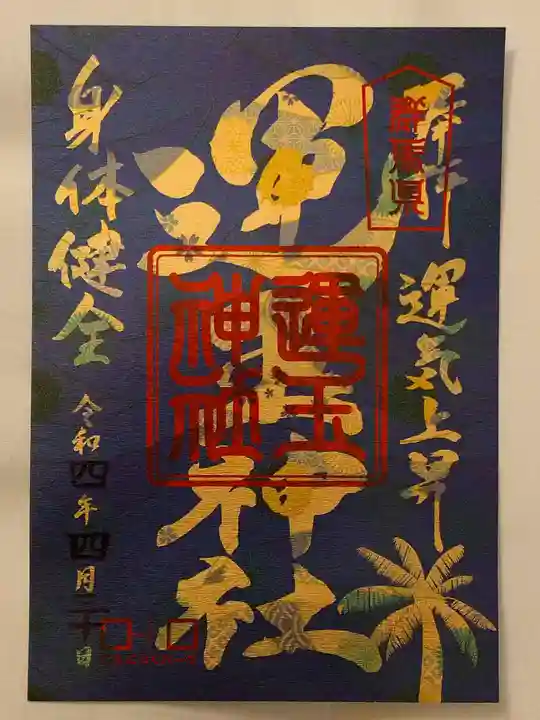 奉拝
運気上昇
運玉神社
運玉
神社
身体健全
令和四年四月二十日